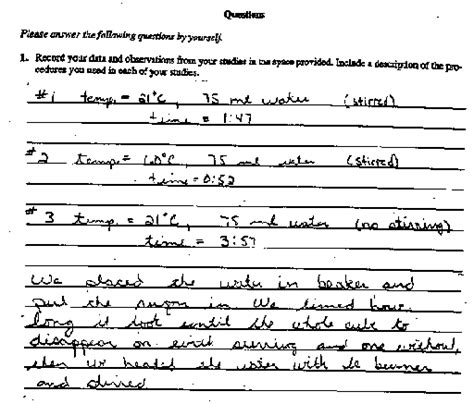 Questions
Please answer the following questions by yourself.
1. Record your data and observations from your studies in the space provided. Include a description of the pro-
cedures you used in each of your studies.
#1 temp. = 21°C, 75 ml water (stirred)
time = 1:47
#2 temp = 60°C, 75 ml water (stirred)
time = 0:52
#3 temp. = 21°C, 75 ml water (no stirring)
time = 3:57
We placed the water in beaker and
put the sugar in. We timed how
long it took until the whole cube to
disappear on stirring and one without,
then we heated the water with the burner
and stirred